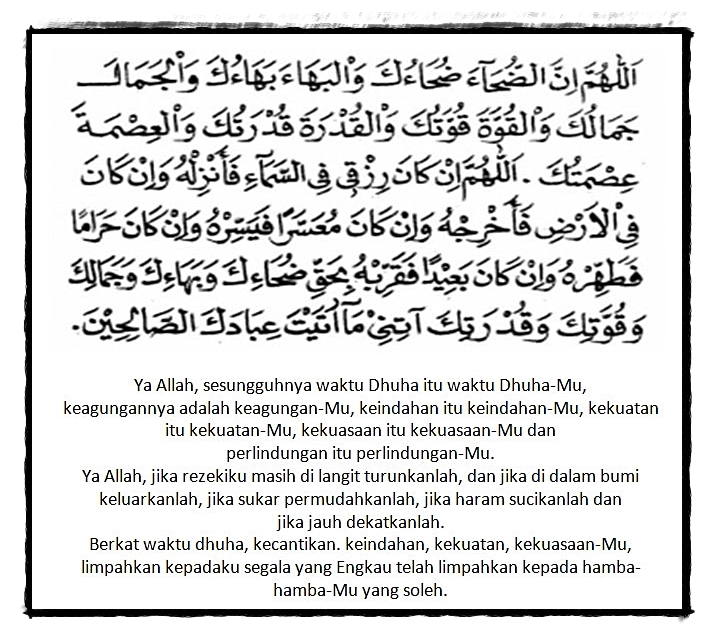 اَللّٰهُمَّ اِنَّ الضُّحَآءَ ضُحَاءُكَ وَالْبَهَاءَ بَهَاءُكَ وَالْجَمَالَ
جَمَالُكَ وَالْقُوَّةَ قُوَّتُكَ وَالْقُدْرَةَ قُدْرَتُكَ وَالْعِصْمَةَ
عِصْمَتُكَ . اَللّٰهُمَّ اِنْ كَانَ رِزْقِى فِى السَّمَآءِ فَأَنْزِلْهُ وَاِنْ كَانَ
فِى اْلاَرْضِ فَأَخْرِجْهُ وَاِنْ كَانَ مُعَسَّرًا فَيَسِّرْهُ وَاِنْ كَانَ حَرَامًا
فَطَهِّرْهُ وَاِنْ كَانَ بَعِيْدًا فَقَرِّبْهُ بِحَقِّ ضُحَاءِكَ وَبَهَاءِكَ وَجَمَالِكَ
وَقُوَّتِكَ وَقُدْرَتِكَ آتِنِىْ مَآ اٰتَيْتَ عِبَادَكَ الصَّالِحِيْنَ.
Ya Allah, sesungguhnya waktu Dhuha itu waktu Dhuha-Mu,
keagungannya adalah keagungan-Mu, keindahan itu keindahan-Mu, kekuatan
itu kekuatan-Mu, kekuasaan itu kekuasaan-Mu dan
perlindungan itu perlindungan-Mu.
Ya Allah, jika rezekiku masih di langit turunkanlah, dan jika di dalam bumi
keluarkanlah, jika sukar permudahkanlah, jika haram sucikanlah dan
jika jauh dekatkanlah.
Berkat waktu dhuha, kecantikan. keindahan, kekuatan, kekuasaan-Mu,
limpahkan kepadaku segala yang Engkau telah limpahkan kepada hamba-
hamba-Mu yang soleh.